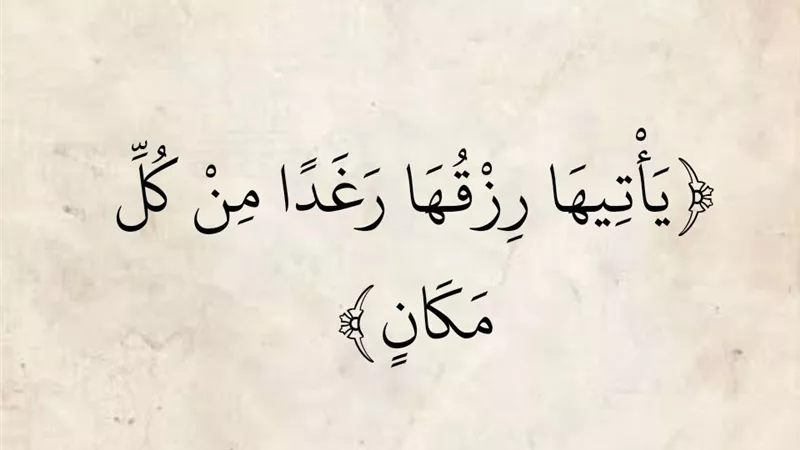 ﴿يَأْتِيهَا رِزْقُهَا رَغَدًا مِنْ كُلِّ
مَكَانٍ﴾